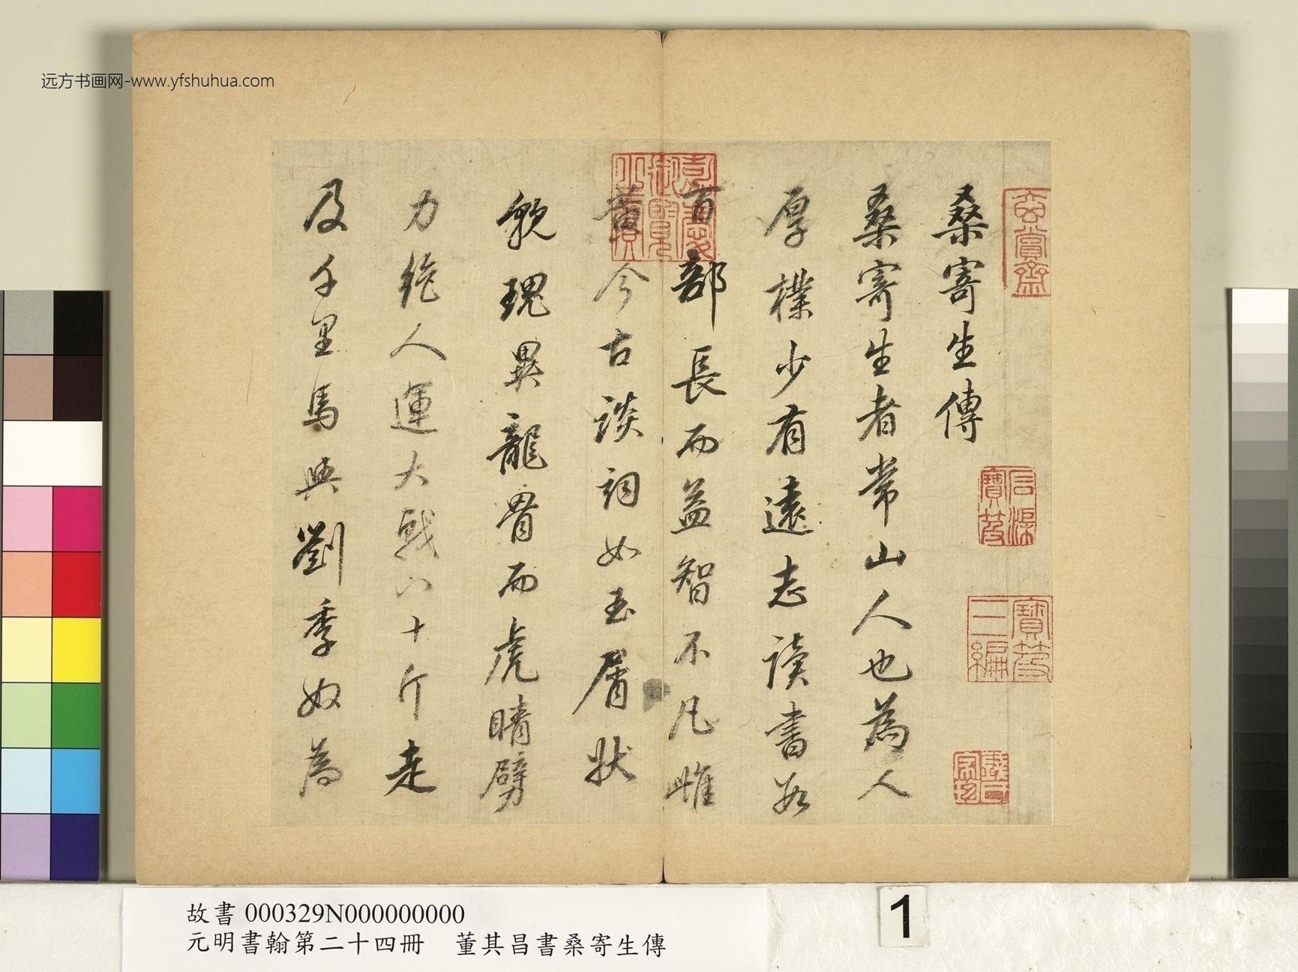 远方书画网-www.yfshuhua.com
桑寄生傳
桑寄生者常山人也為人
厚樸少有遠志讀書數
百部長而益智不凡雌
黃今古談詞如玉屑狀
貌瑰異龍骨而虎睛劈
力絶人運大戟八十斤走
及千里馬與劉季奴為
奕賞齋
石渠寶笈
寶笈三編
嘉慶御覽之寶
故書 000329N000000000
元明書翰第二十四冊　董其昌書桑寄生傳
1